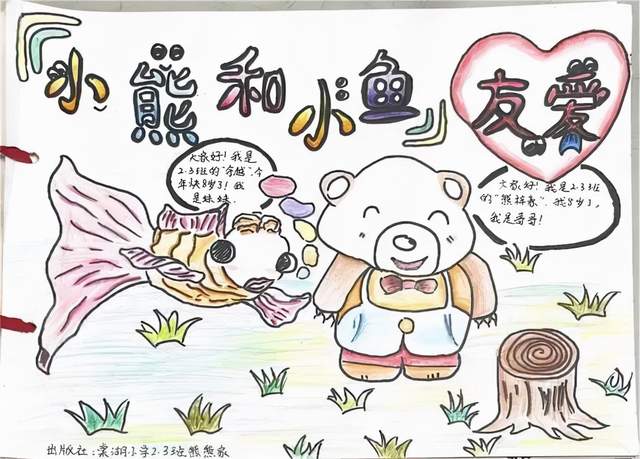 小熊和小鱼
友爱
大家好！我是
2.3班的
年快8岁了！我
是妹妹.
大家好！我是2.3班
的"熊梓
我8岁了，
我是哥哥！
出版社：棠湖小学2.3班熊熊家